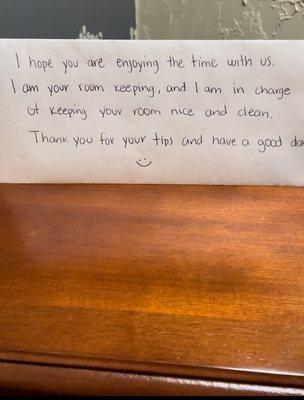 I hope you are enjoying the time with us.
I am your room keeping, and I am in charge
of keeping your room nice and clean.
Thank you for your tips and have a good day